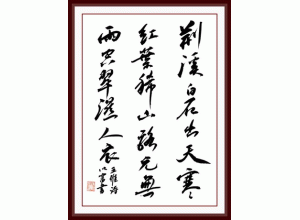 荊溪白石出天寒
紅葉稀山路元無
雨空翠濕人衣
王維詩